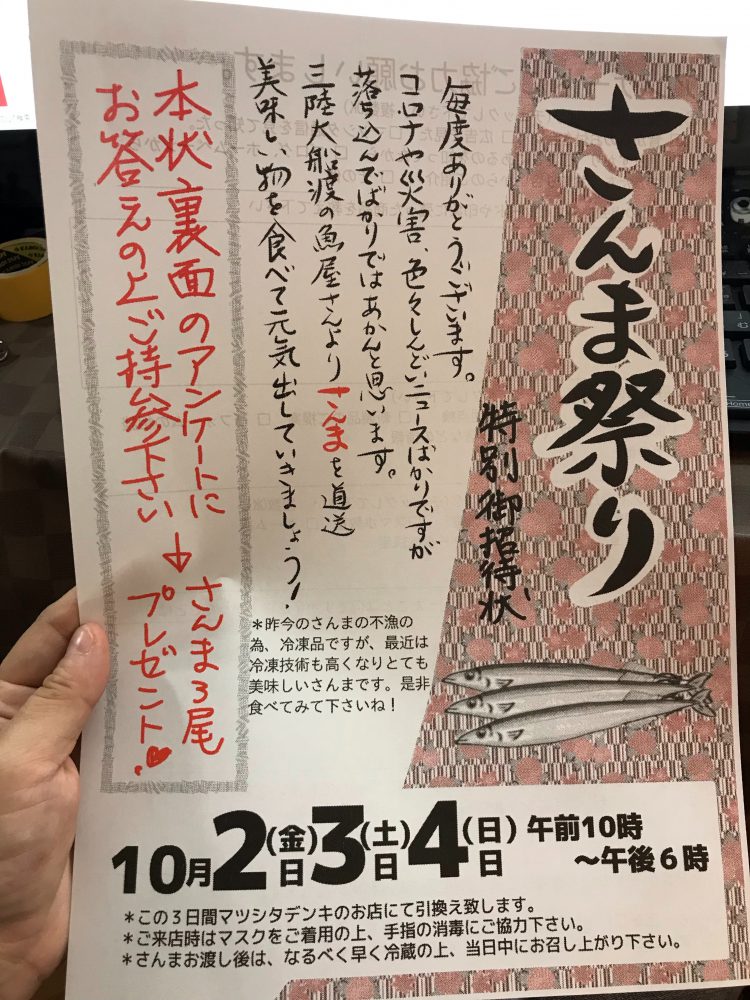 さんま祭り
特別御招待状
毎度ありがとうございます。
コロナや災害、色々しんどいニュースばかりですが
落ち込んでばかりではあかんと思います。
三陸大船渡の魚屋さんよりさんまを直送
美味しい物を食べて元気出していきましょう!
*昨今のさんまの不漁の
為、冷凍品ですが、最近は
冷凍技術も高くなりとても
美味しいさんまです。是非
食べてみて下さいね!
本状裏面のアンケートに
お答えの上ご持参下さい→さんま3尾
プレゼント♥
10月2日(金)3日(土)4日(日)午前10時
~午後6時
*この3日間マツシタデンキのお店にて引換え致します。
*ご来店時はマスクをご着用の上、手指の消毒にご協力下さい。
*さんまお渡し後は、なるべく早く冷蔵の上、当日中にお召し上がり下さい。